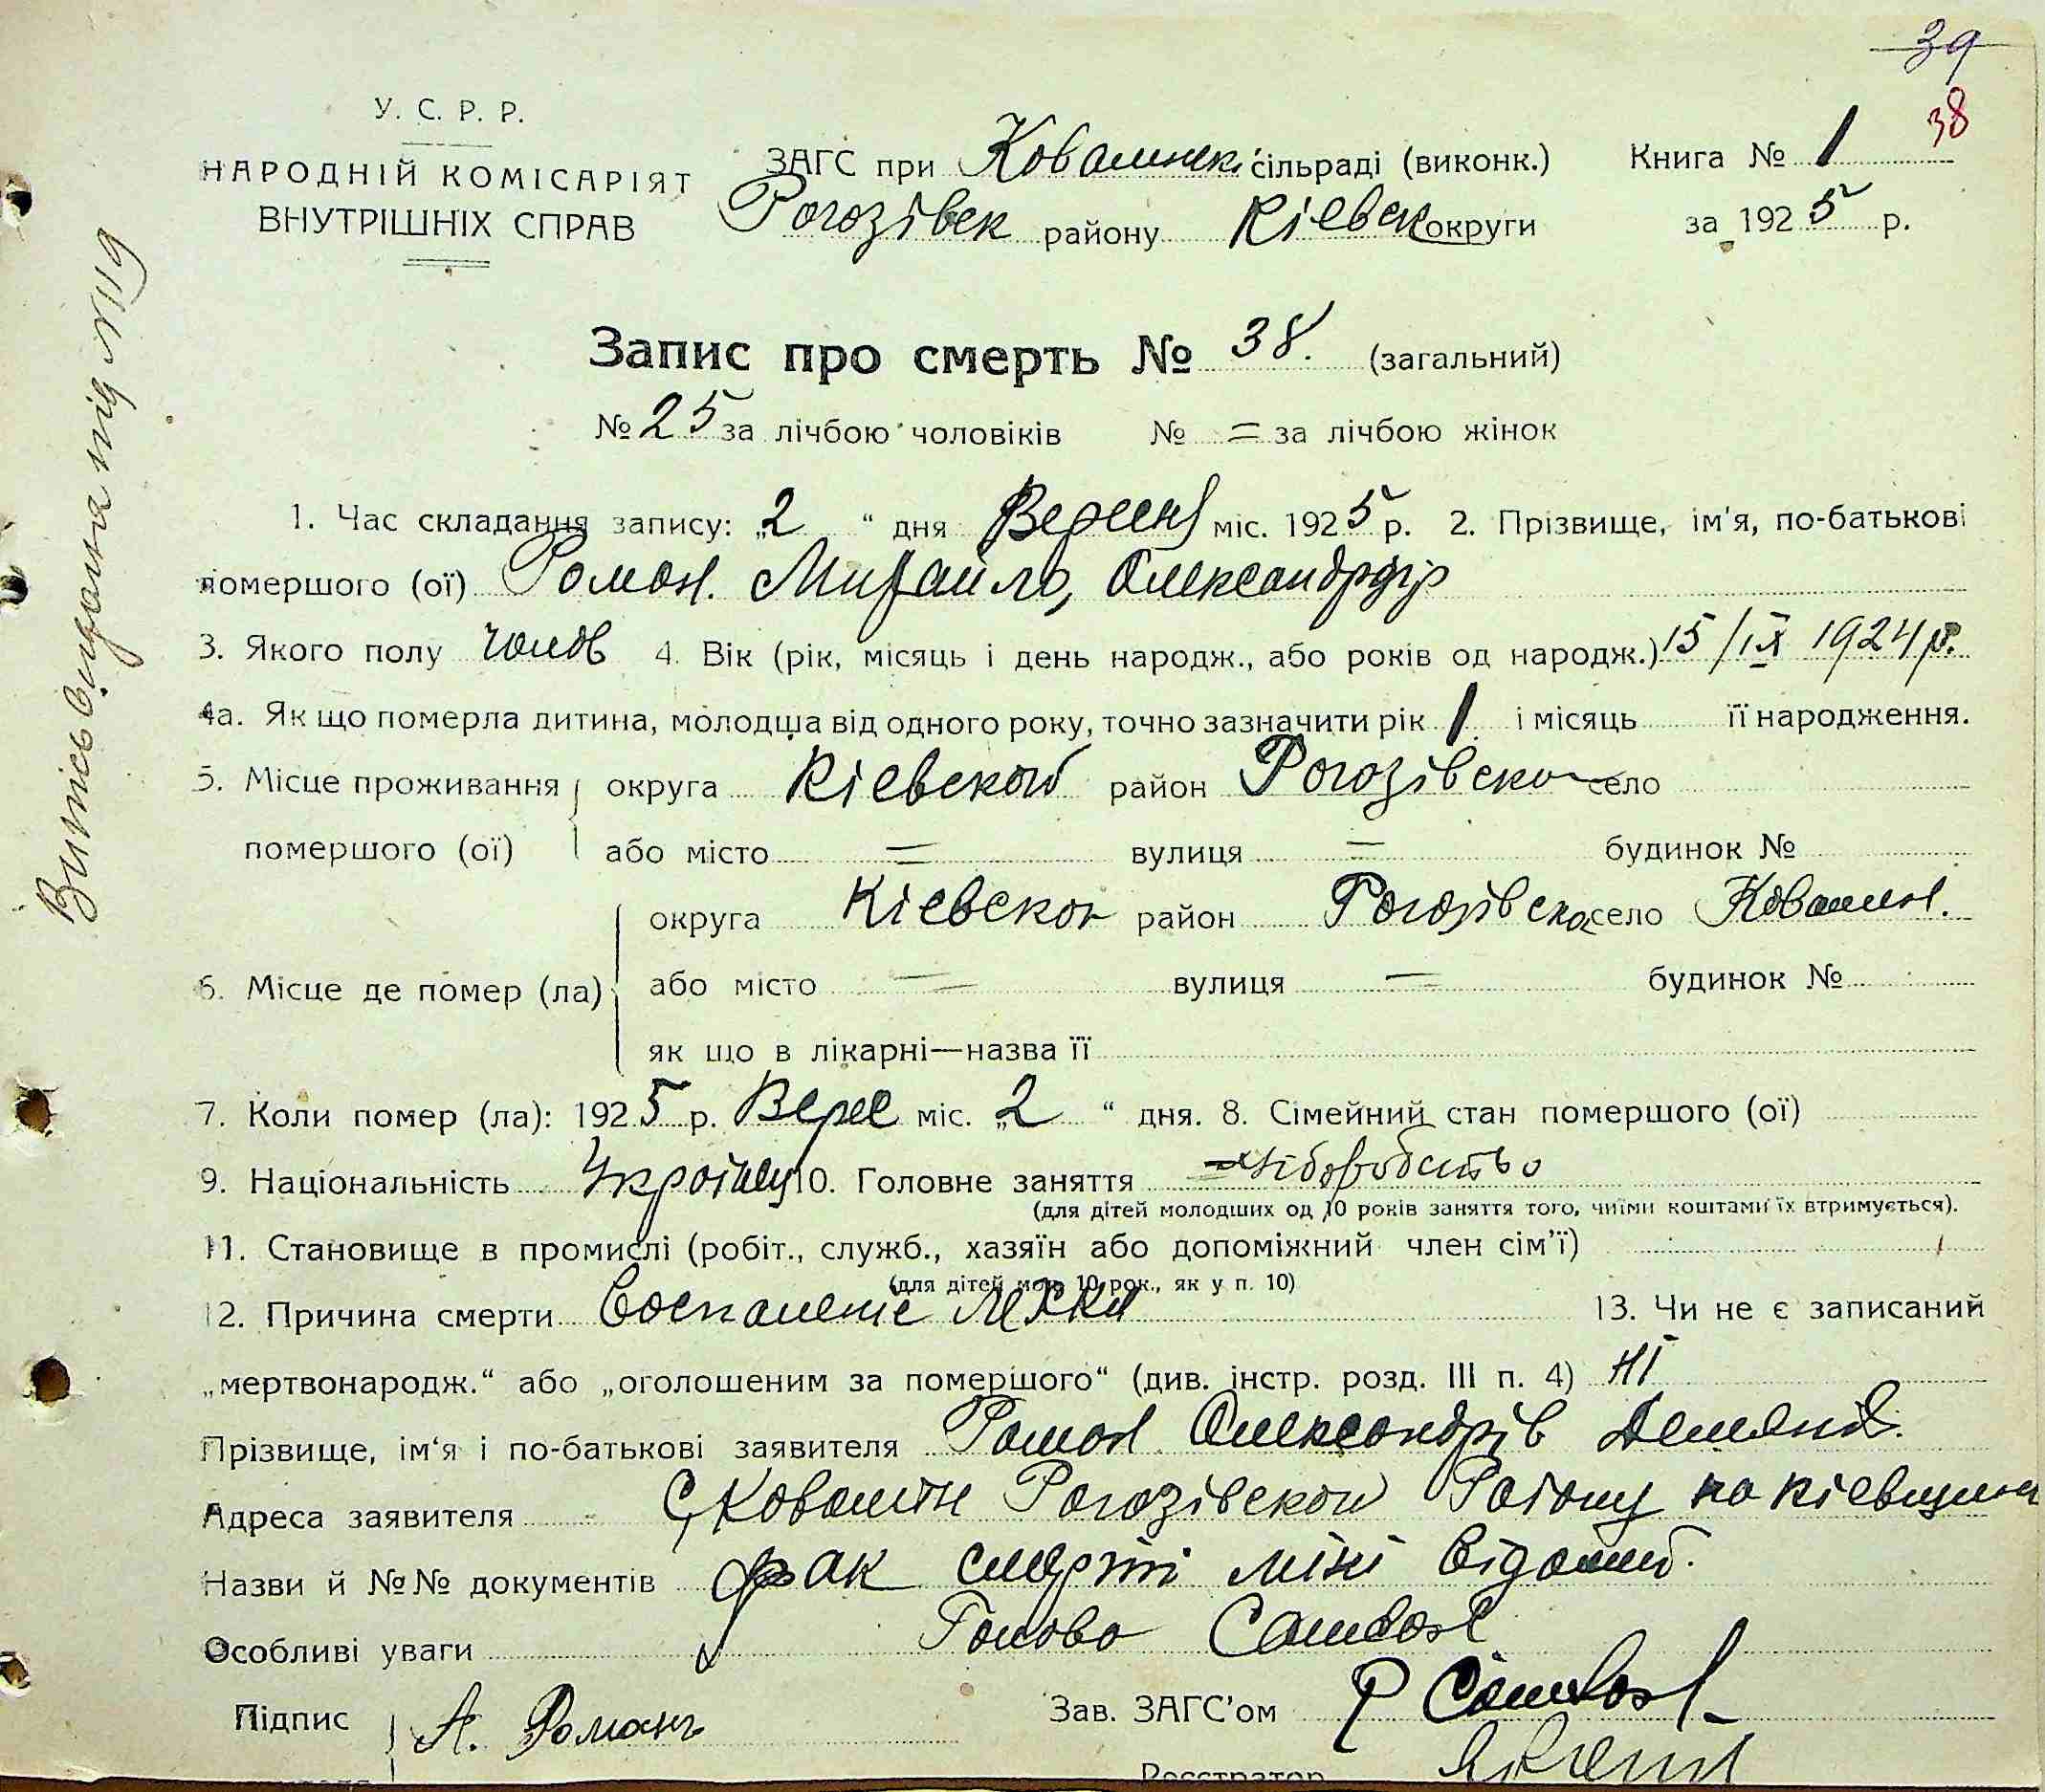 39
38
У. С. Р. Р.
НАРОДНІЙ КОМІСАРІЯТ
ВНУТРІШНІХ СПРАВ
ЗАГС при Ковалинскі сільраді (виконк.) Книга № 1
Рогозівск району Кіевск округи за 1925 р.
Витись видана під №119
Запис про смерть № 38. (загальний)
№ 25 за лічбою чоловіків № = за лічбою жінок
1. Час складання запису: „2 “ дня Вересня міс. 1925 р. 2. Прізвище, ім'я, по-батькові
помершого (ої) Роман. Михайло,
3. Якого полу чолов 4. Вік (рік, місяць і день народж., або років од народж.) 15/IX 1924 р.
4а. Як що померла дитина, молодща від одного року, точно зазначити рік 1 і місяць її народження.
5. Місце проживання округа Кіевскоі район Рогозівско село
помершого (ої) або місто = вулиця = будинок №
округа Кіевскоі район Рогозівско село Ковалин.
6. Місце де помер (ла) або місто — вулиця — будинок №
як що в лікарні—назва її
7. Коли помер (ла): 1925 р. Вере міс. „2 “ дня. 8. Сімейний стан помершого (ої)
9. Національність Україн 10. Головне заняття хліборобство
(для дітей молодших од 10 років заняття того, чиїми коштами їх втримується).
11. Становище в промислі (робіт., служб., хазяїн або допоміжний член сім'ї)
(для дітей мол. 10 рок., як у п. 10)
12. Причина смерти Воспаленіе 13. Чи не є записаний
„мертвонародж.“ або „оголошеним за помершого“ (див. інстр. розд. III п. 4) НІ
Прізвище, ім'я і по-батькові заявителя Роман Олександрів
Адреса заявителя С, Ковалин Рогозівскоі Раіону на Кіевщині
Назви й №№ документів фак смерті міні відомий.
Особливі уваги Голова
Підпис А. Романъ Зав. ЗАГС'ом
Реєстратор